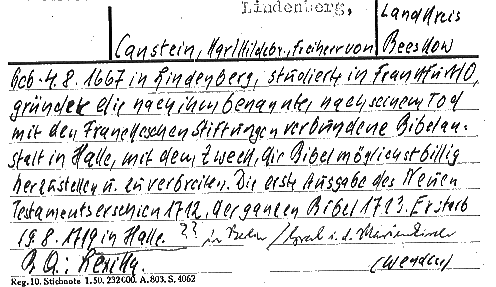 Lindenberg,
Landkreis
Canstein, Karl Hildebr., Freiherr von
Beeskow
Geb. 4.8.1667 in Lindenberg, studierte in Frankfurt/O,
gründete die nach ihm benannte, nach seinem Tod
mit den Franckeschen Stiftungen verbundene Bibelan-
stalt in Halle, mit dem Zweck, die Bibel möglichst billig
herzustellen u. zu verbreiten. Die erste Ausgabe des Neuen
Testaments erschien 1712, der ganzen Bibel 1713. Er starb
19.8.1719 in Halle. ?? in Berlin / Grab i. d. Marienkirche
B.Q.:
(Wender)
Reg. 10. Stichnote 1.50. 232000. A. 803. S. 4062